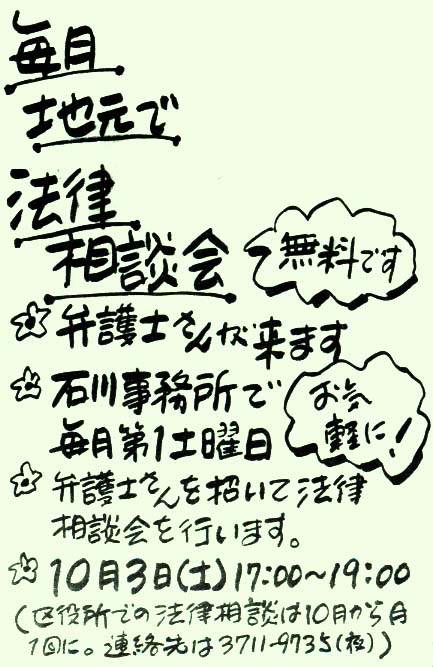 毎月
地元で
法律
相談会
無料です
弁護士さんが来ます
石川事務所で
毎月第1土曜日
お気
軽に!
弁護士さんを招いて法律
相談会を行います。
10月3日(土)17:00〜19:00
(区役所での法律相談は10月から月
1回に。連絡先は3711-9735(枝))